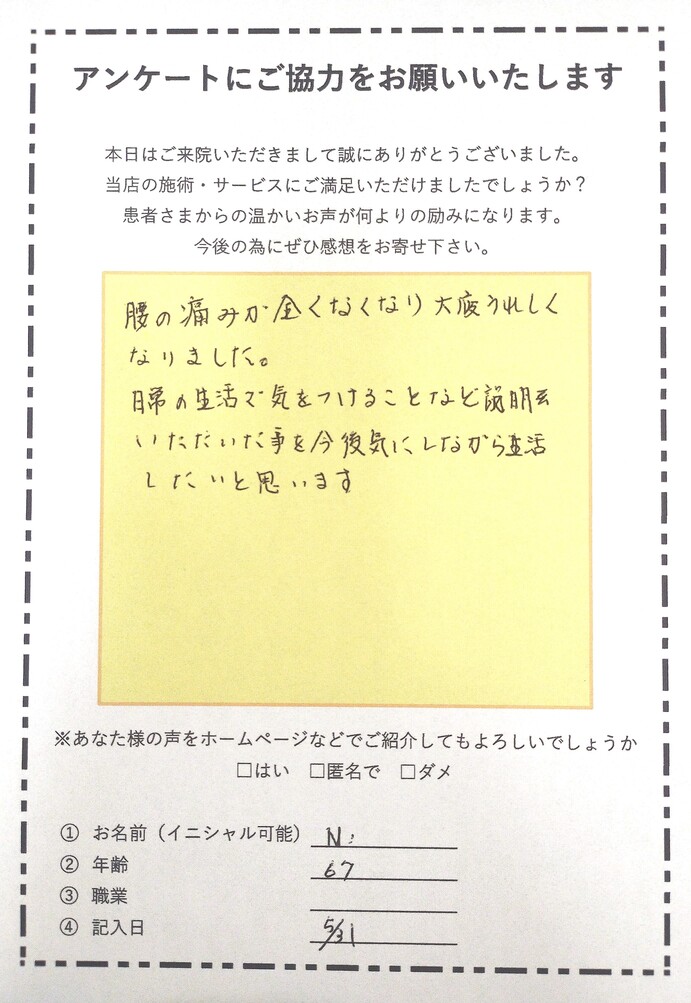 アンケートにご協力をお願いいたします
本日はご来院いただきまして誠にありがとうございました。
当店の施術・サービスにご満足いただけましたでしょうか？
患者さまからの温かいお声が何よりの励みになります。
今後の為にぜひ感想をお寄せ下さい。
腰の痛みが全くなくなり大変うれしく
なりました。
日常の生活で気をつけることなど説明
いただいた事を今後気にしながら生活
したいと思います
※あなた様の声をホームページなどでご紹介してもよろしいでしょうか
□はい □匿名で □ダメ
① お名前（イニシャル可能） N
② 年齢 67
③ 職業
④ 記入日 5/31